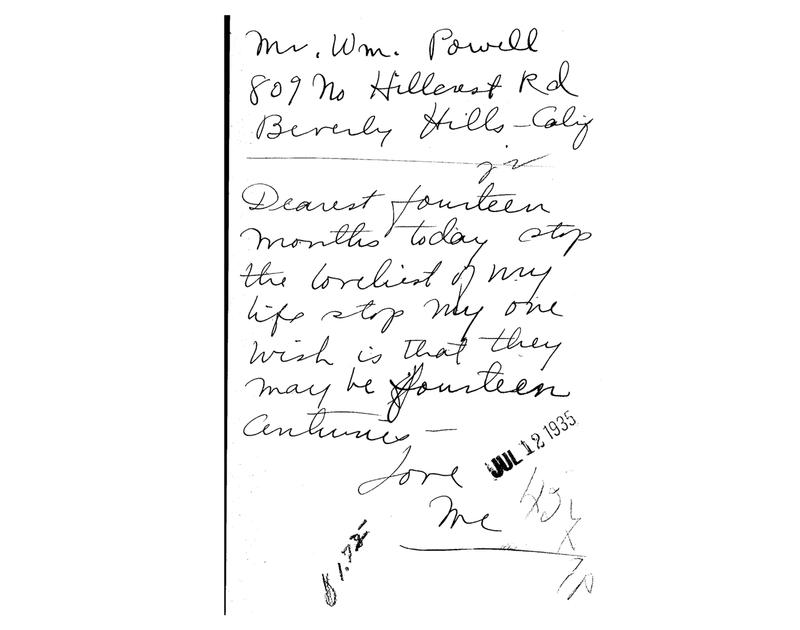 Mr. Wm. Powell
809 No Hillcrest Rd
Beverly Hills - Calif
Dearest fourteen
months today stop
the loveliest of my
life stop my one
wish is that they
may be fourteen
centuries -
Love
JUL 12 1935
Me
$1.72